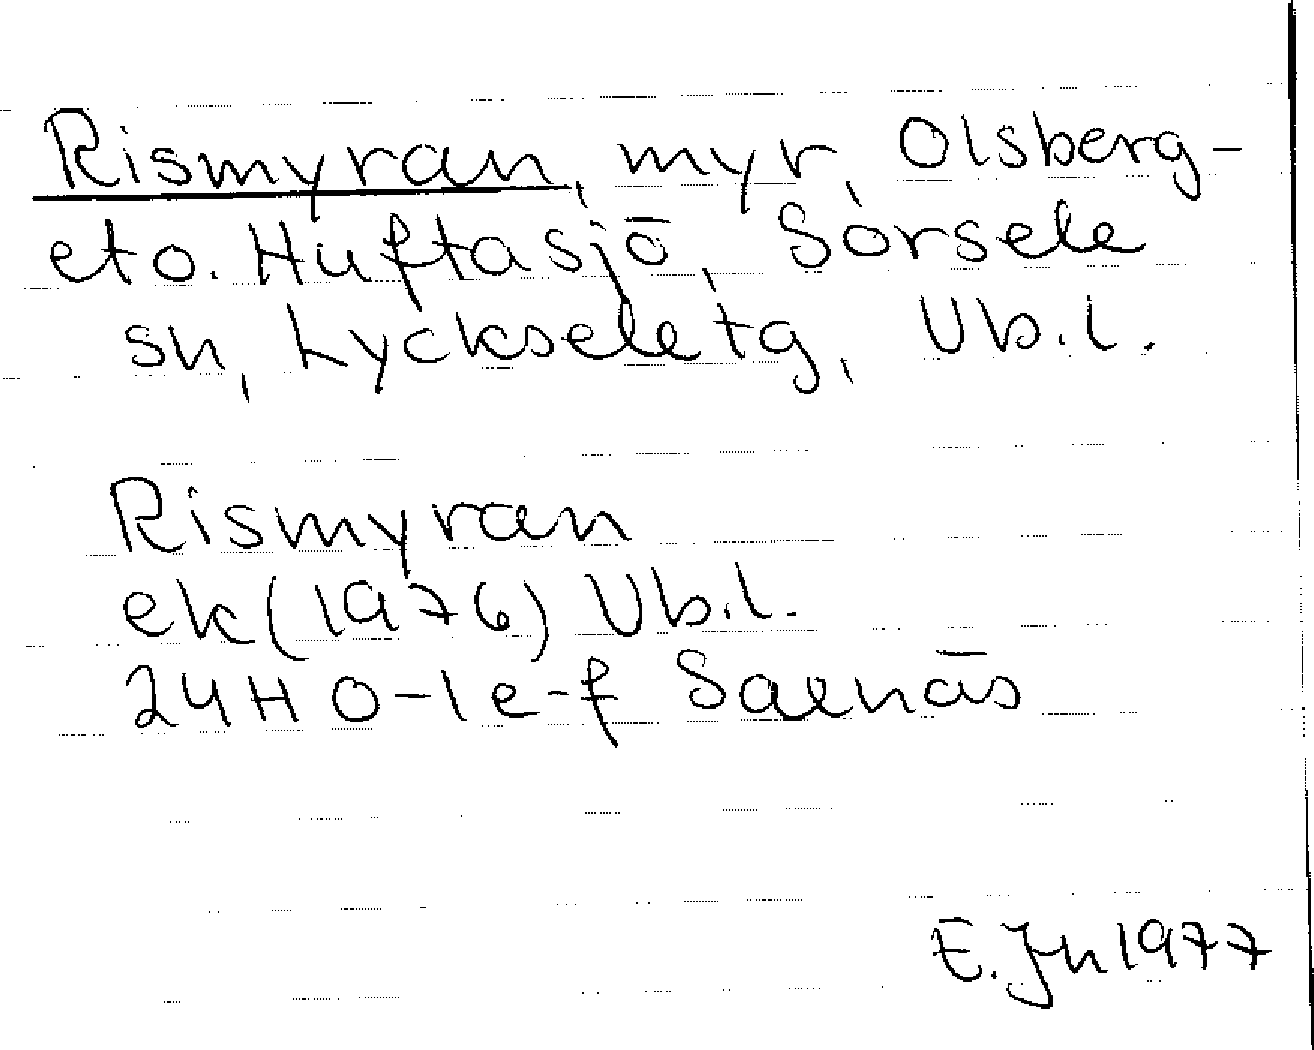 Rismyran, myr, Olsberg-
eto. Huftasjö, Sorsele
sn, Lycksele tg, Vb.l.
Rismyran
ek (1976) Vb.l.
24H 0-1 e-f Saxnäs
1977